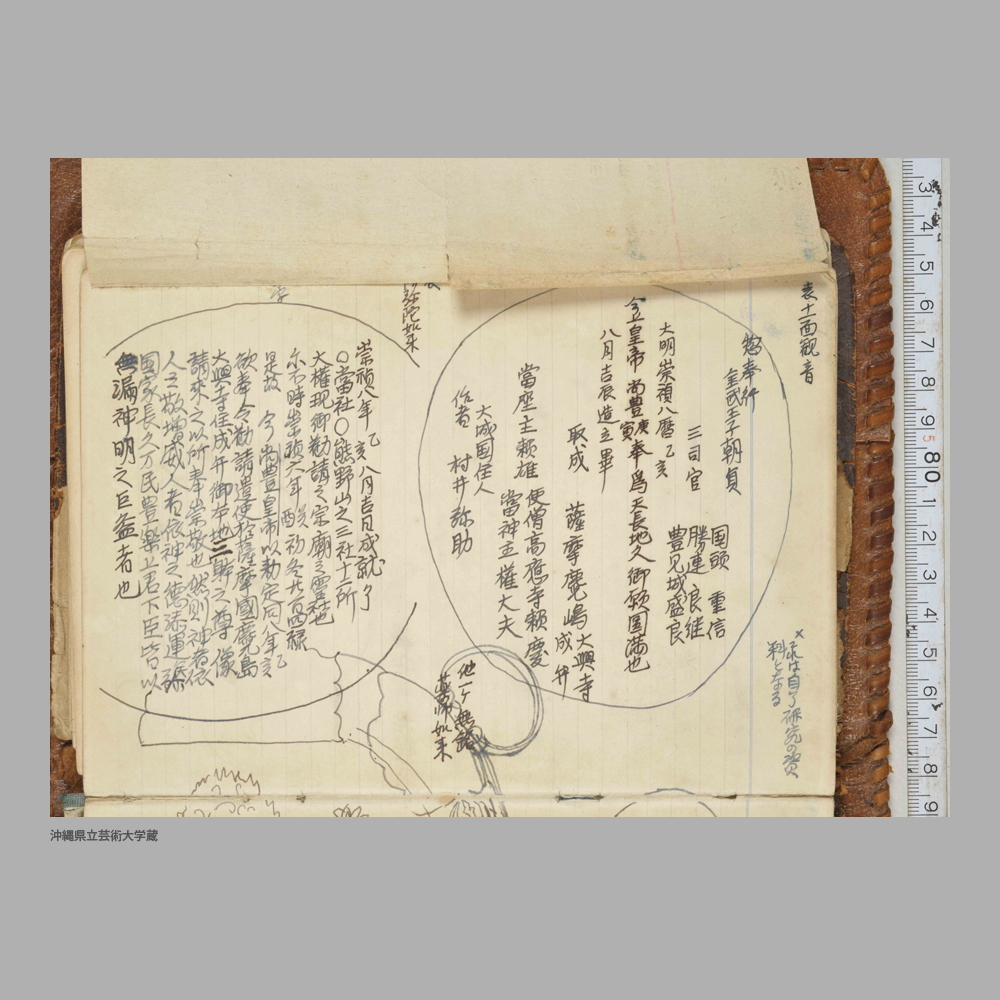 表十一面観音
惣奉行
金武王子朝貞
三司官
国頭 重信
勝連 良継
豊見城盛良
大明崇禎八暦乙亥
今上皇帝 尚豊庚寅奉為天長地久御願円満也
八月吉辰造立畢
取成 薩摩麑嶋大興寺
成弁
當座主頼雄 使僧高應寺頼慶
當神主權大夫
大城国住人
作者 村井弥助
×コレは自了研究の資
料となる
弥陀如来
他一ヶ無銘
薬師如来
崇禎八年乙亥八月吉日成就了
○當社○熊野山之三社十二所
大權現御勧請之宗廟之靈社也
尓時崇禎六年癸酉初冬廿百四禄
是故 今尚豊皇帝以勅定同八年乙亥
欲奉令勧請遣使於薩摩國麑島
大興寺住成弁御本地三幹之尊像
請來之以所奉崇敬也然則神者依
人之敬増威人者依神之徳添運
国家長久万民豊樂上君下臣皆以
無漏神明之巨益者也
3 4 5 6 7 8 9 80 1 2 3 4 5 6 7 8 9
沖縄県立芸術大学蔵